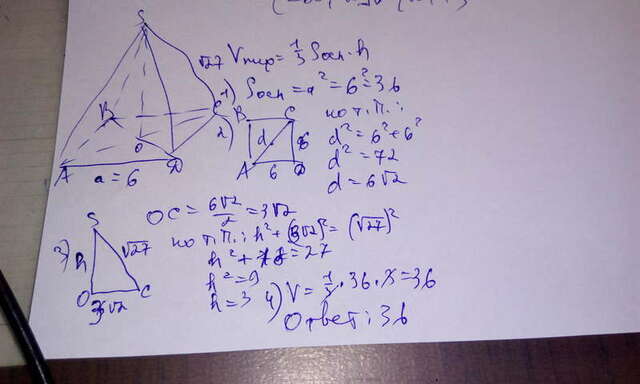 S
√27 Vпир = 1/3 Sосн · h
1) Sосн = a² = 6² = 36
B C
A a = 6 D
O
2) B C
d 6
A 6 D
по т.П.:
d² = 6² + 6²
d² = 72
d = 6√2
OC = 6√2/2 = 3√2
3) S
h √27
O 3√2 C
по т.П.: h² + (3√2)² = (√27)²
h² + 18 = 27
h² = 9
h = 3
4) V = 1/3 · 36 · 3 = 36
Ответ: 36